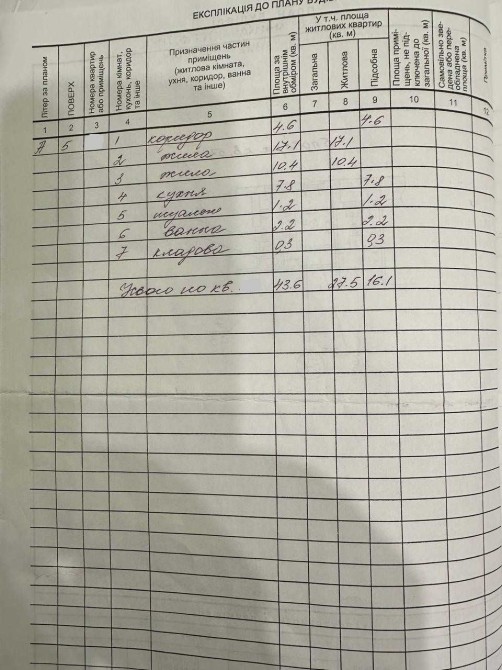 ЕКСПЛІКАЦІЯ ДО ПЛАНУ БУДИ
Літер за планом
ПОВЕРХ
Номера квартир або приміщень
Номера кімнат, кухонь, коридор та інше
Призначення частин приміщень (житлова кімната, ухня, коридор, ванна та інше)
Площа за внутрішнім обміром (кв. м)
У т.ч. площа житлових квартир (кв. м)
Загальна
Житлова
Підсобна
Площа приміщень, не підключена до загальної (кв. м)
Самовільно зведена або переобладнана площа (кв. м)
1 2 3 4 5 6 7 8 9 10 11
А 5 1 коридор 4.6 4.6
2 жила 17.1 17.1
3 жила 10.4 10.4
4 кухня 7.8 7.8
5 туалет 1.2 1.2
6 ванна 2.2 2.2
7 кладова 0,3 0,3
Усього по кв. 43.6 27.5 16.1